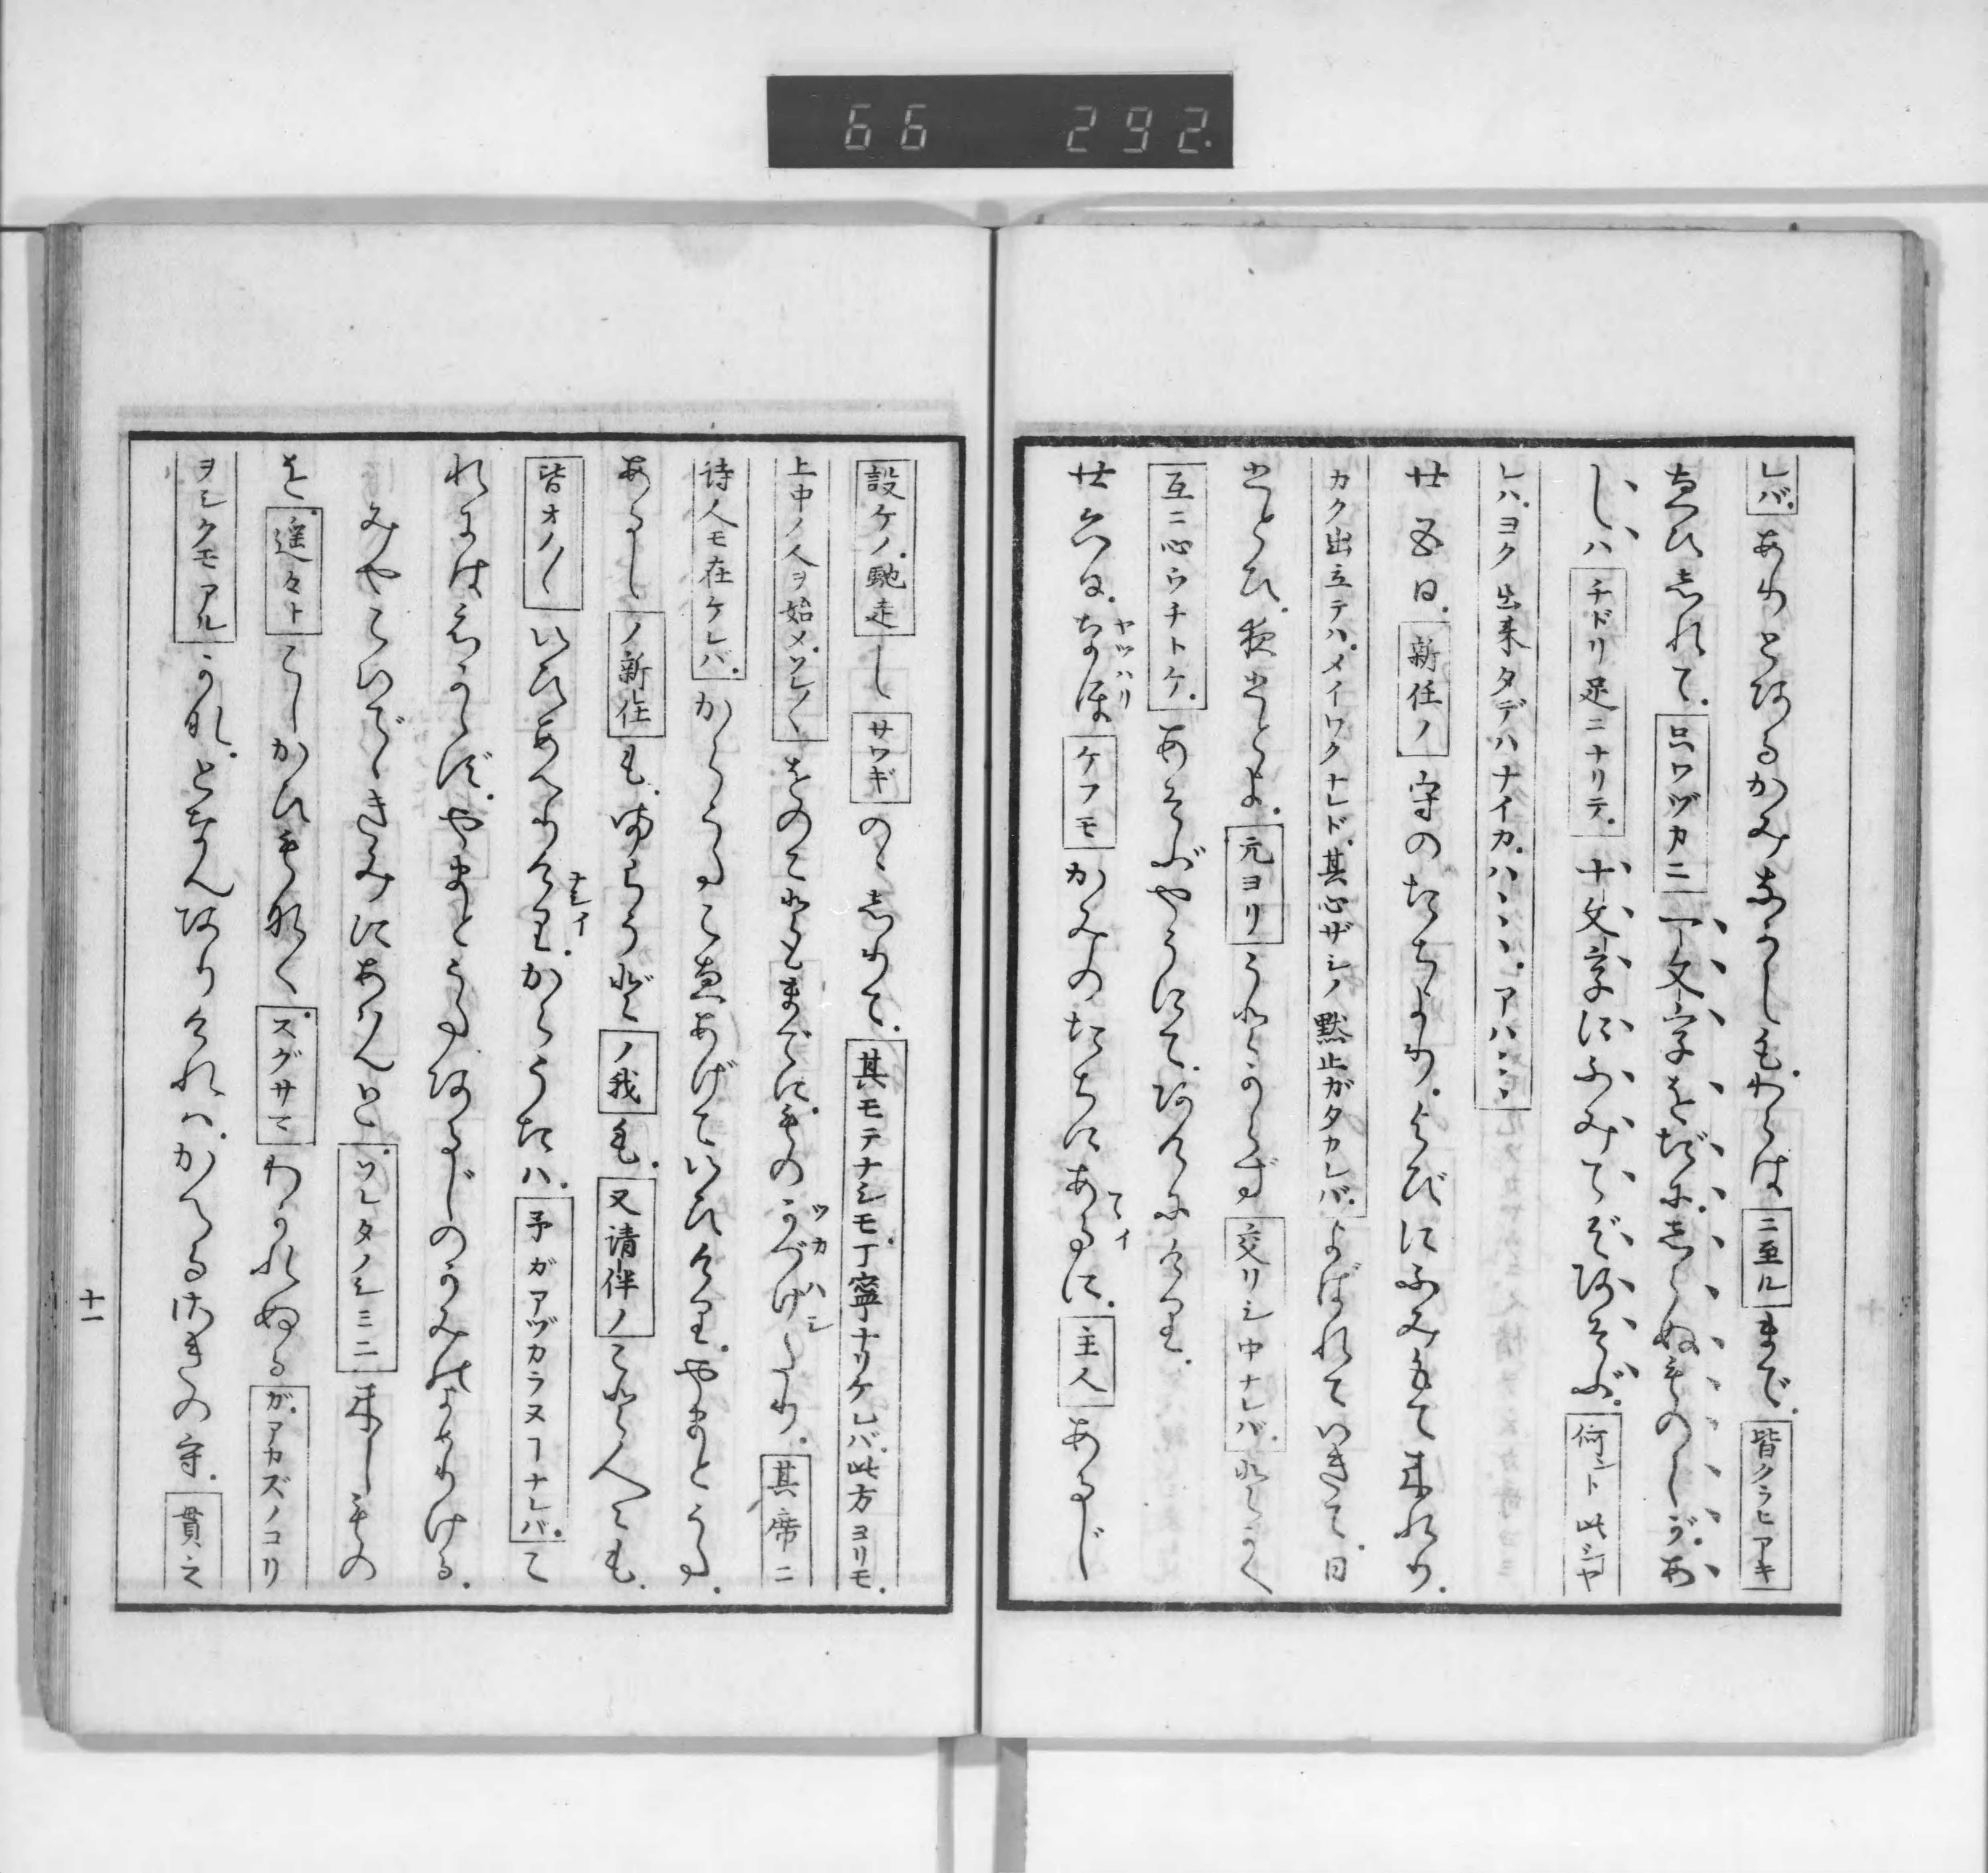 66 292.
レバありとあるかみしもわらは ニ至ル まで 皆クラヒアキ
ゑひしれて 只ワヅカニ 一文字をだにしらぬものしがあ
しハ チドリ足ニナリテ 十文字にふみてぞあそぶ 何ント此シヤ
レハヨク出来タデハナイカハヽヽヽアハヽヽヽ
廿五日 新任ノ 守のたちよりよびにふみもて来れり
カク出立テハメイワクナレド其心ザシノ黙止ガタカレバ よばれていきて日
ひとひ夜ひとよ 元ヨリ うとからず 交リシ中ナレバ とかく
互ニ心ウチトケ あそぶやうにてあけにけり
廿六日なほ ヤッハリ ケフモ かみのたちにあるに てイ 主人 あるじ
設ケノ馳走 し サワギ のゝしりて 其モテナシモ丁寧ナリケレバ此方ヨリモ
上中ノ人ヲ始メソレ〱 をのこらまでにものかづけ ツカハシ たり 其席ニ
詩人モ在ケレバ からうたこゑあげていひけりやまとうた
あるじ ノ新任 もまらうと ノ我 も 又請伴ノ こと人も
皆オノ〱 いひあへりけり ナシイ からうたハ 予ガアヅカラヌヿナレバ こ
れにはえかゝずやまとうたあるじのかみのよめりける
みやこいでゝきみにあはんと ソレタノシミニ 来しもの
を 遥々ト こしかひもなく スグサマ わかれぬる ガアカズノコリ
ヲシクモアル かな となんありけれハかへるさきの守 貫之
十一